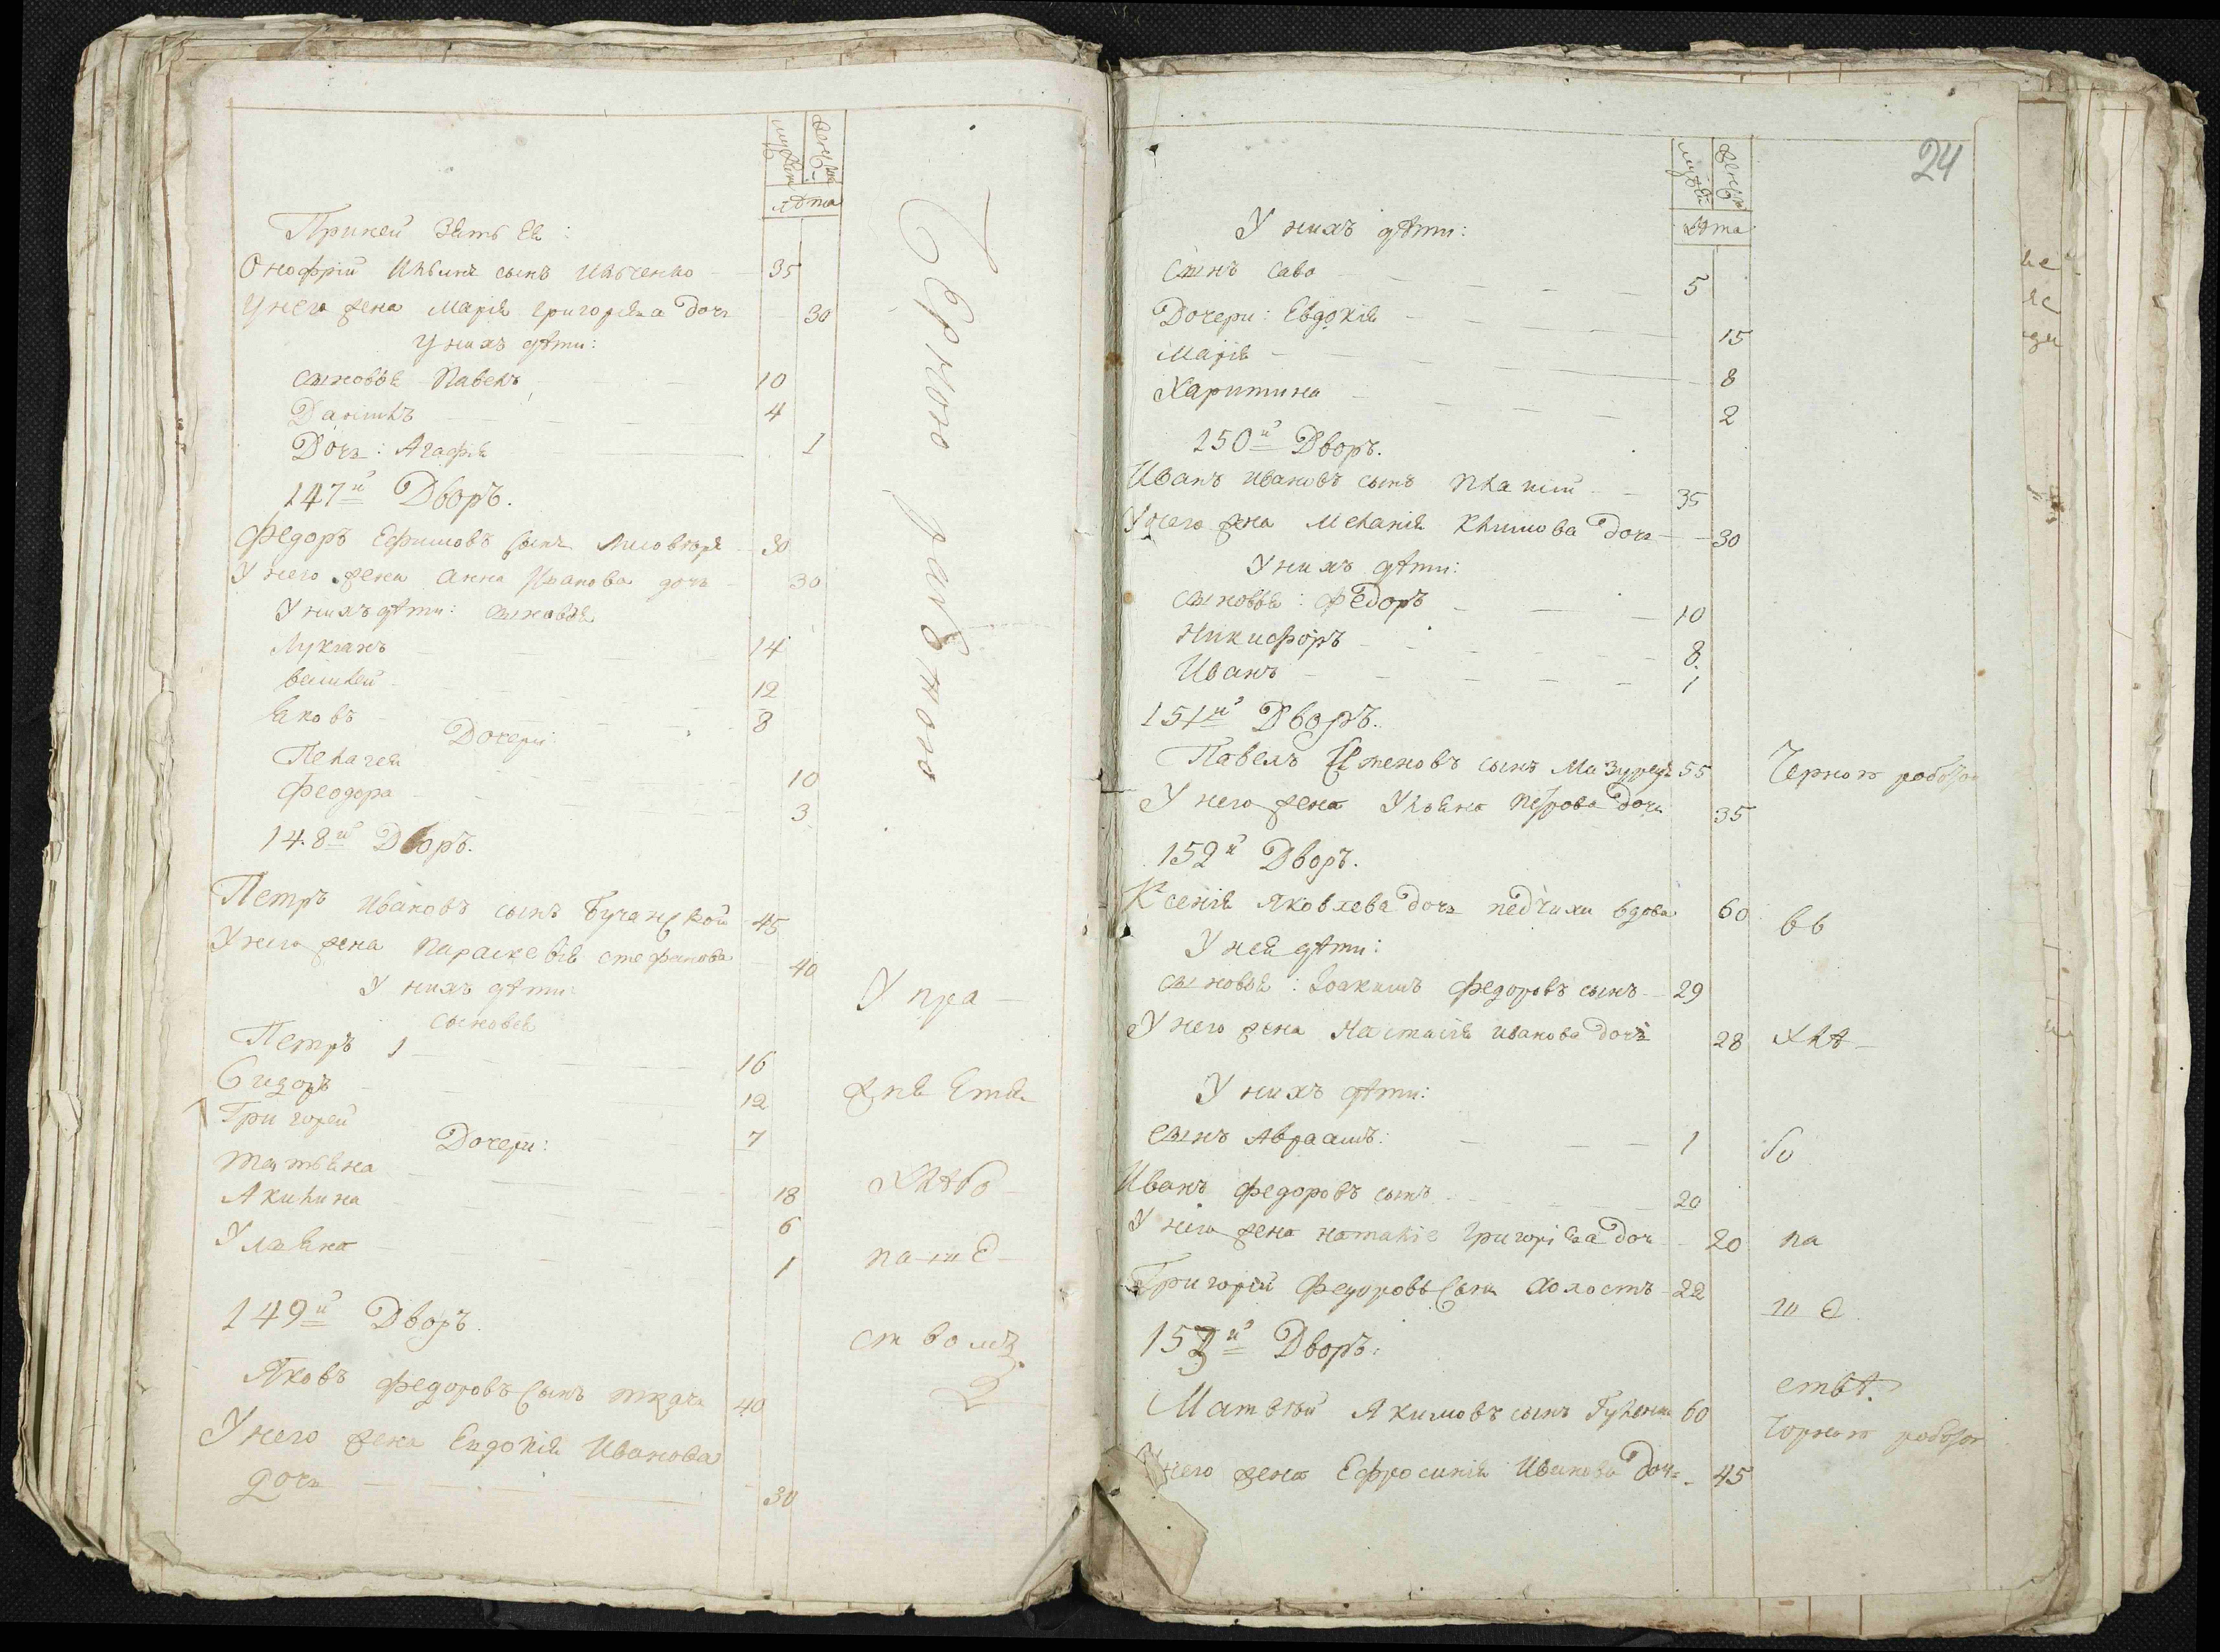 мужеск женск
лѣта
При ней зять ея:
Онофрій Ильинъ сынъ Ильченко 35
У него жена Марія Григорьева дочь 30
У нихъ дѣти:
сыновья Павелъ 10
Данилъ 4
Дочь: Агафія 1
147й Дворъ.
Федоръ Ефимовъ сынъ 30
У него жена Анна Иванова дочь 30
У нихъ дѣти: сыновья
Лукіанъ 14
8
Яковъ 12
Дочери:
Пелагея 10
Феодора 3
148й Дворъ.
Петръ Ивановъ сынъ Бучанской 45
У него жена Параскевія Стефанова 40
У нихъ дѣти:
сыновья
Петръ 1 16
Сидоръ 12
Григорей 7
Дочери:
Татьяна 18
Акилина 6
Ульяна 1
149й Дворъ.
Яковъ Федоровъ сынъ Ткачъ 40
У него жена Евдокія Иванова
дочь 30
Черною работою
Упра-
жняется
хлѣбо-
паше-
ствомъ
24
мужеск женск
лѣта
У нихъ дѣти:
Сынъ Сава 5
Дочери: Евдокія 15
Марія 8
Харитина 2
150й Дворъ.
Иванъ Ивановъ сынъ 35
У него жена Меланія Климова дочь 30
У нихъ дѣти:
сыновья: Федоръ 10
Никифоръ 8
Иванъ 1
151й Дворъ.
Павелъ Стеновъ сынъ Мазурецъ 55 Черною работою
У него жена Ульяна Петрова дочь 35
152й Дворъ.
Ксенія Яковлева дочь вдова 60 въ
У ней дѣти:
сыновья: Іоакимъ Федоровъ сынъ 29
У него жена Настасія Иванова дочь 28 хлѣ-
У нихъ дѣти:
сынъ Авраамъ: 1 бо
Иванъ Федоровъ сынъ 20
У него жена Наталіе Григоріева доч 20 па
Григорій Федоровъ сынъ холостъ 22 ше
153й Дворъ: ствѣ
Матвѣй Якимовъ сынъ 60 Чорною работою
У него жена Ефросинія Иванова дочь 45